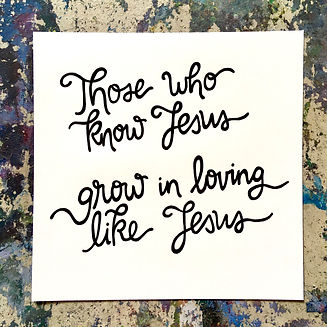 Those who
know Jesus
grow in loving
like Jesus